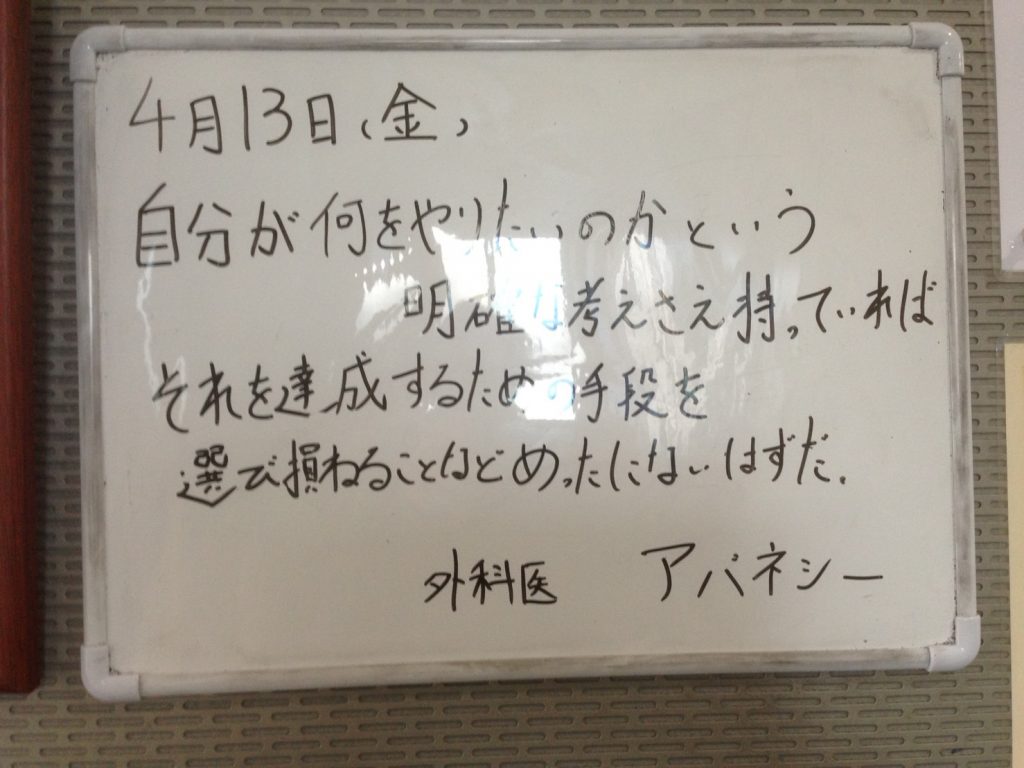 4月13日(金)
自分が何をやりたいのかという
明確な考えさえ持っていれば
それを達成するための手段を
選び損ねることなどめったにないはずだ.
外科医 アバネシー